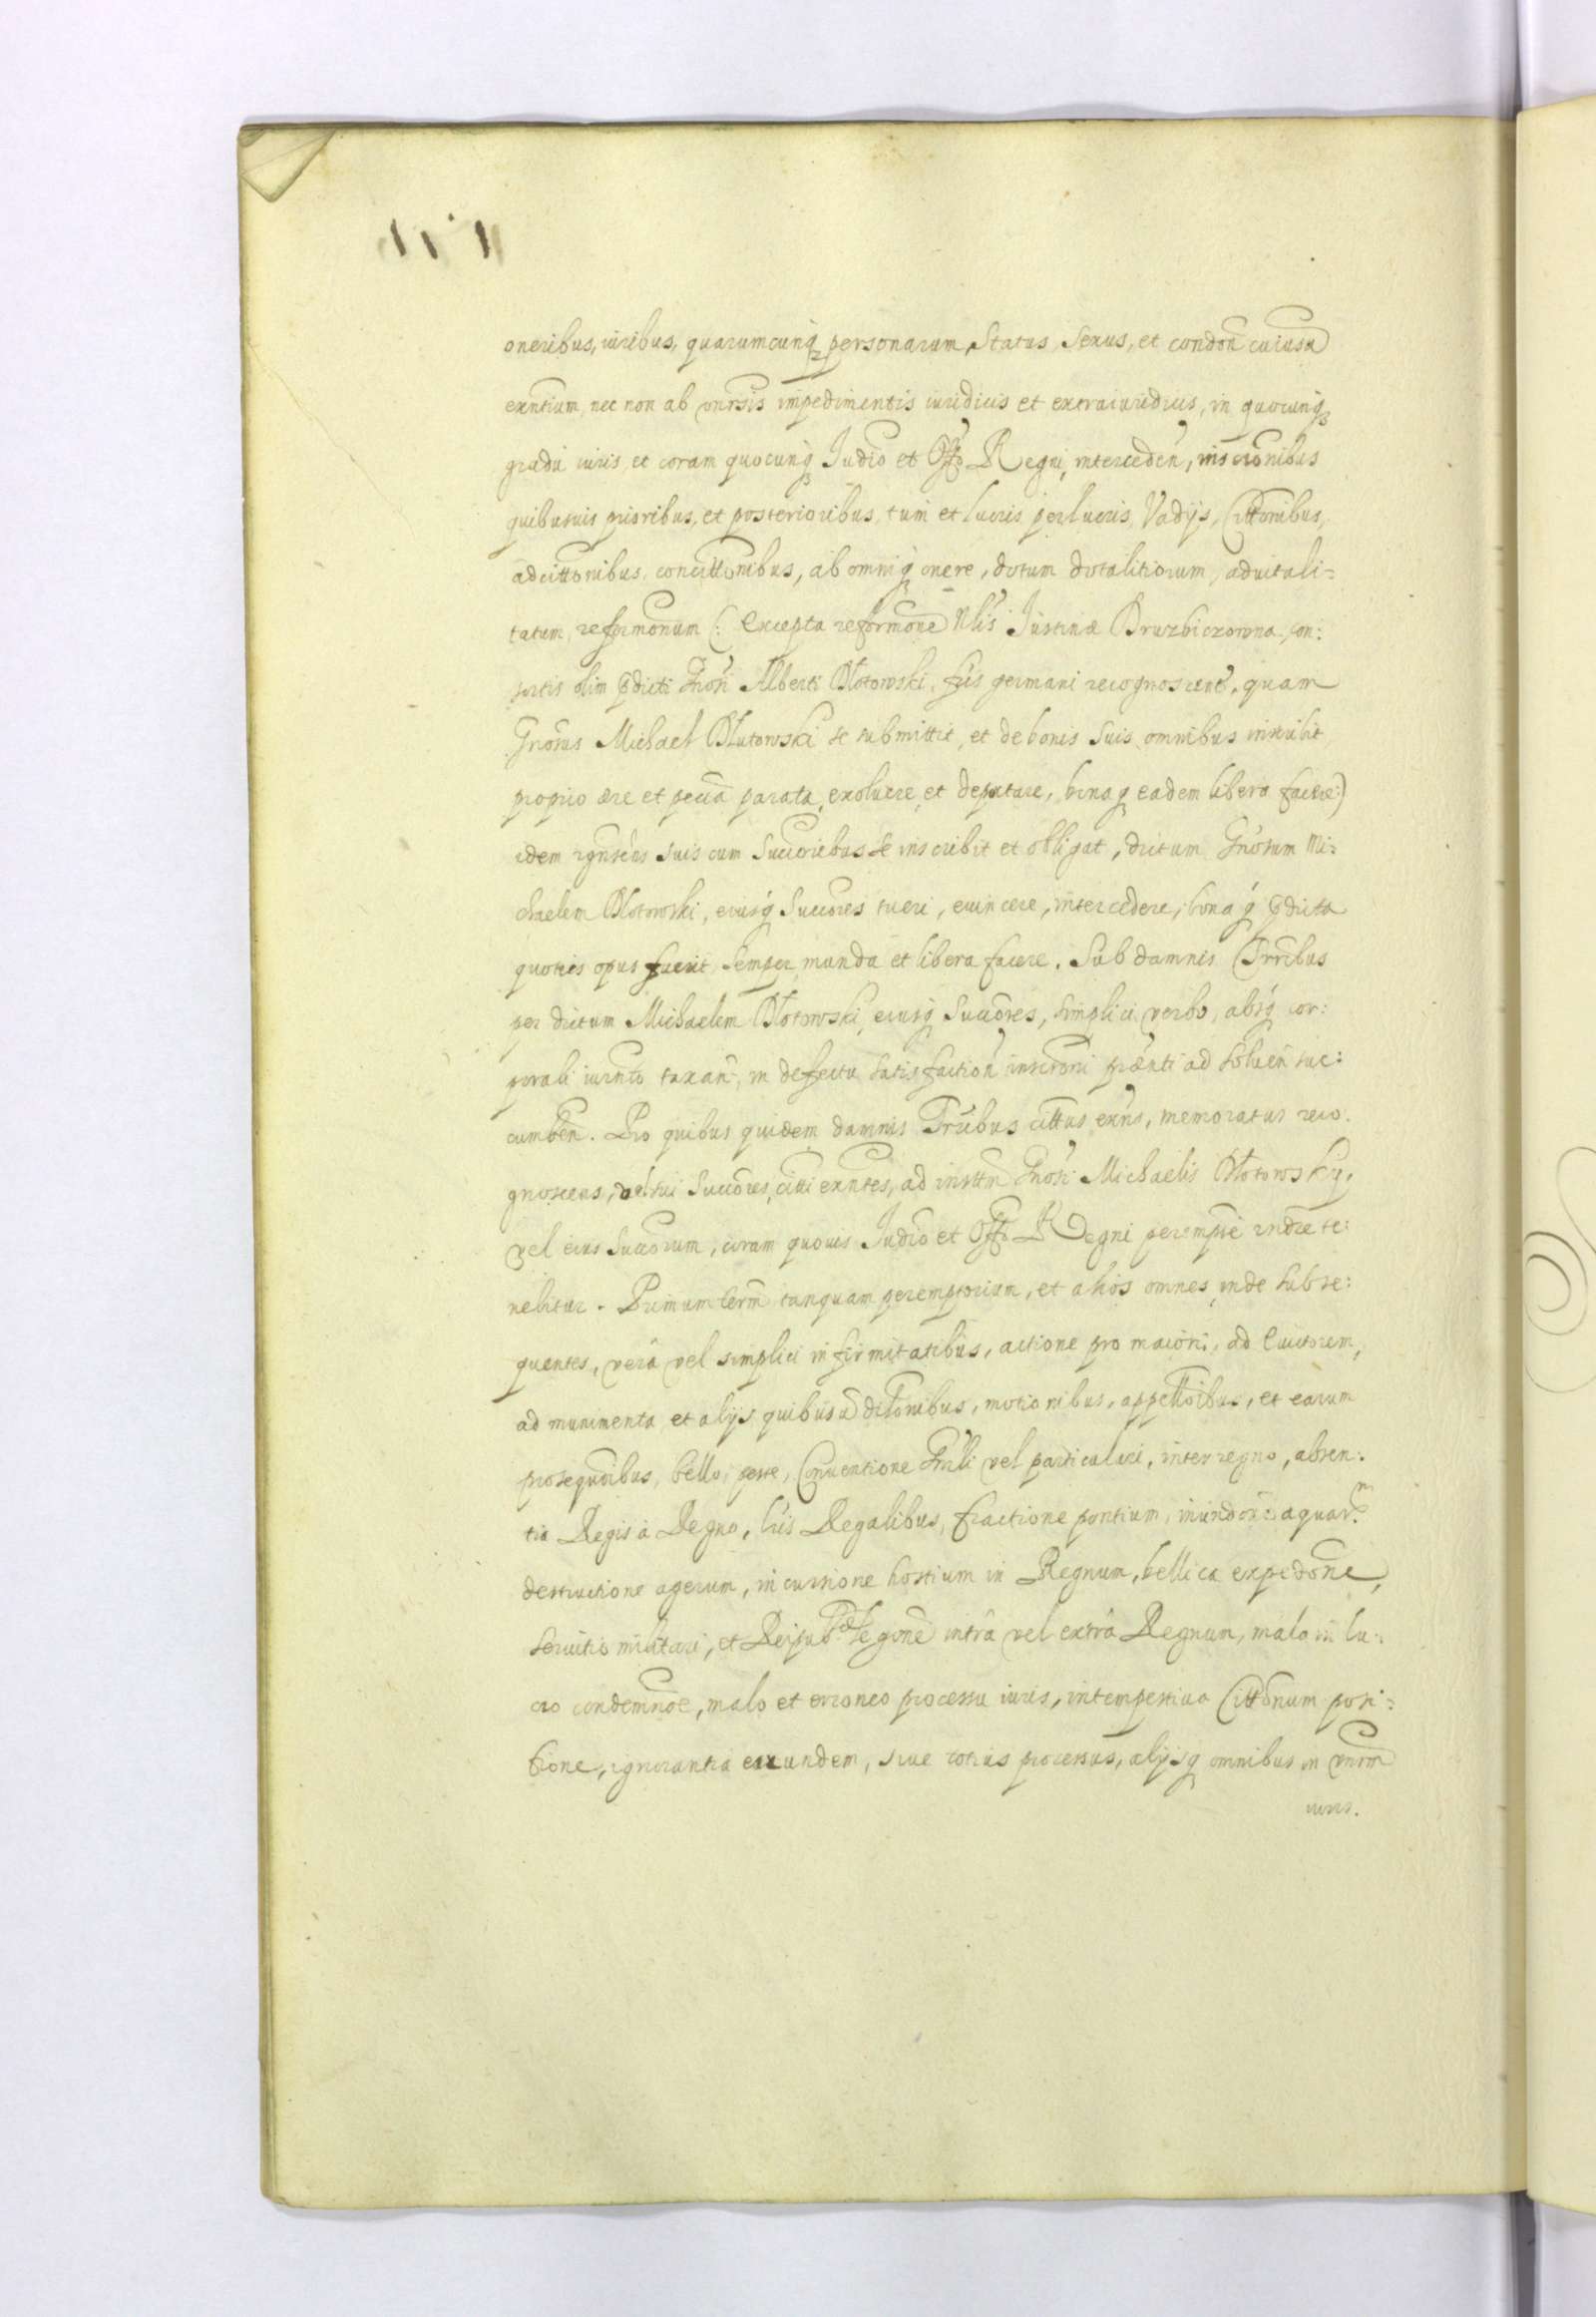 oneribus, iuribus, quarumcunq; personarum, Status, Sexus, et condōn cuiusū
exntium, nec non ab vniṙsis impedimentis iuridicis et extraiuridicis, in quocunq;
gradu iuris, et coram quocunq; Iudīo et Offō Regni, interceden̄, inscrōnibus
quibusuis prioribus, et posterioribus, tum et lucris perlucris, Vadijs, Cittōnibus,
adcittōnibus, concittōnibus, ab omniq; onere, dotum dotalitiorum, aduitali=
tatum, reformōnum (: Excepta reformōne Nlis Iustinæ Druzbiczowna, con:
sortis olim p̄dicti Gnosi Alberti Dłotowski, fr̄is germani recognoscent̄, quam
Gnosus Michael Dłutowski se submittit, et de bonis suis omnibus inscribit,
proprio ære et pec̄ia parata, exoluere, et deputare, bonaq; eadem libera facere:)
idem rgnscēns suis cum Succōribus se inscribit et obligat, dictum Gnosum Mi:
chaelem Dłotowski, eiusq; Succōres tueri, euincere, intercedere, bonaq; p̄dicta
quoties opus fuerit, semper munda et libera facere. Sub damnis Trr̄ibus
per dictum Michaelem Dłotowski, eiusq; Succōres, simplici verbo, absq; cor:
porali iurnto taxan̄, in defectu satisfaction̄ inscrōni præsnti ad soluen̄ suc:
cumben̄. Pro quibus quidem damnis Trr̄ibus cittus exn̄s, memoratus reco.
gnoscens, vel sui Succōres, citti exn̄tes, ad insttm̄ Gnosi Michaelis Dłotowsky,
vel eius Succōrum, coram quouis Iudīo et Offō Regni perempt̄e rndere te:
nebitur. Primum term̄ tanquam peremptorium, et alios omnes inde subse:
quentes, vera vel simplici infirmitatibus, actione pro maiori, ad Euictorem,
ad munimenta et alijs quibusū dilōnibus, motionibus, appellōibus, et earum
prosequōibus, bello, peste, Conuentione Gnāli vel particulari, interregno, absen:
tia Regis à Regno, lr̄is Regalibus, fractione pontium, inundōne aquar̄m
destructione agerum, incursione hostium in Regnum, bellica expedōne,
seruitio militari, et Reipub̄cæ legōne intrà vel extrà Regnum, malo in lu:
cro condemnōe, malo et erroneo processu iuris, intempestiua Cittōnum posi:
tione, ignorantia earundem, siue totius processus, alijsq; omnibus in vnir̄m
iuris.